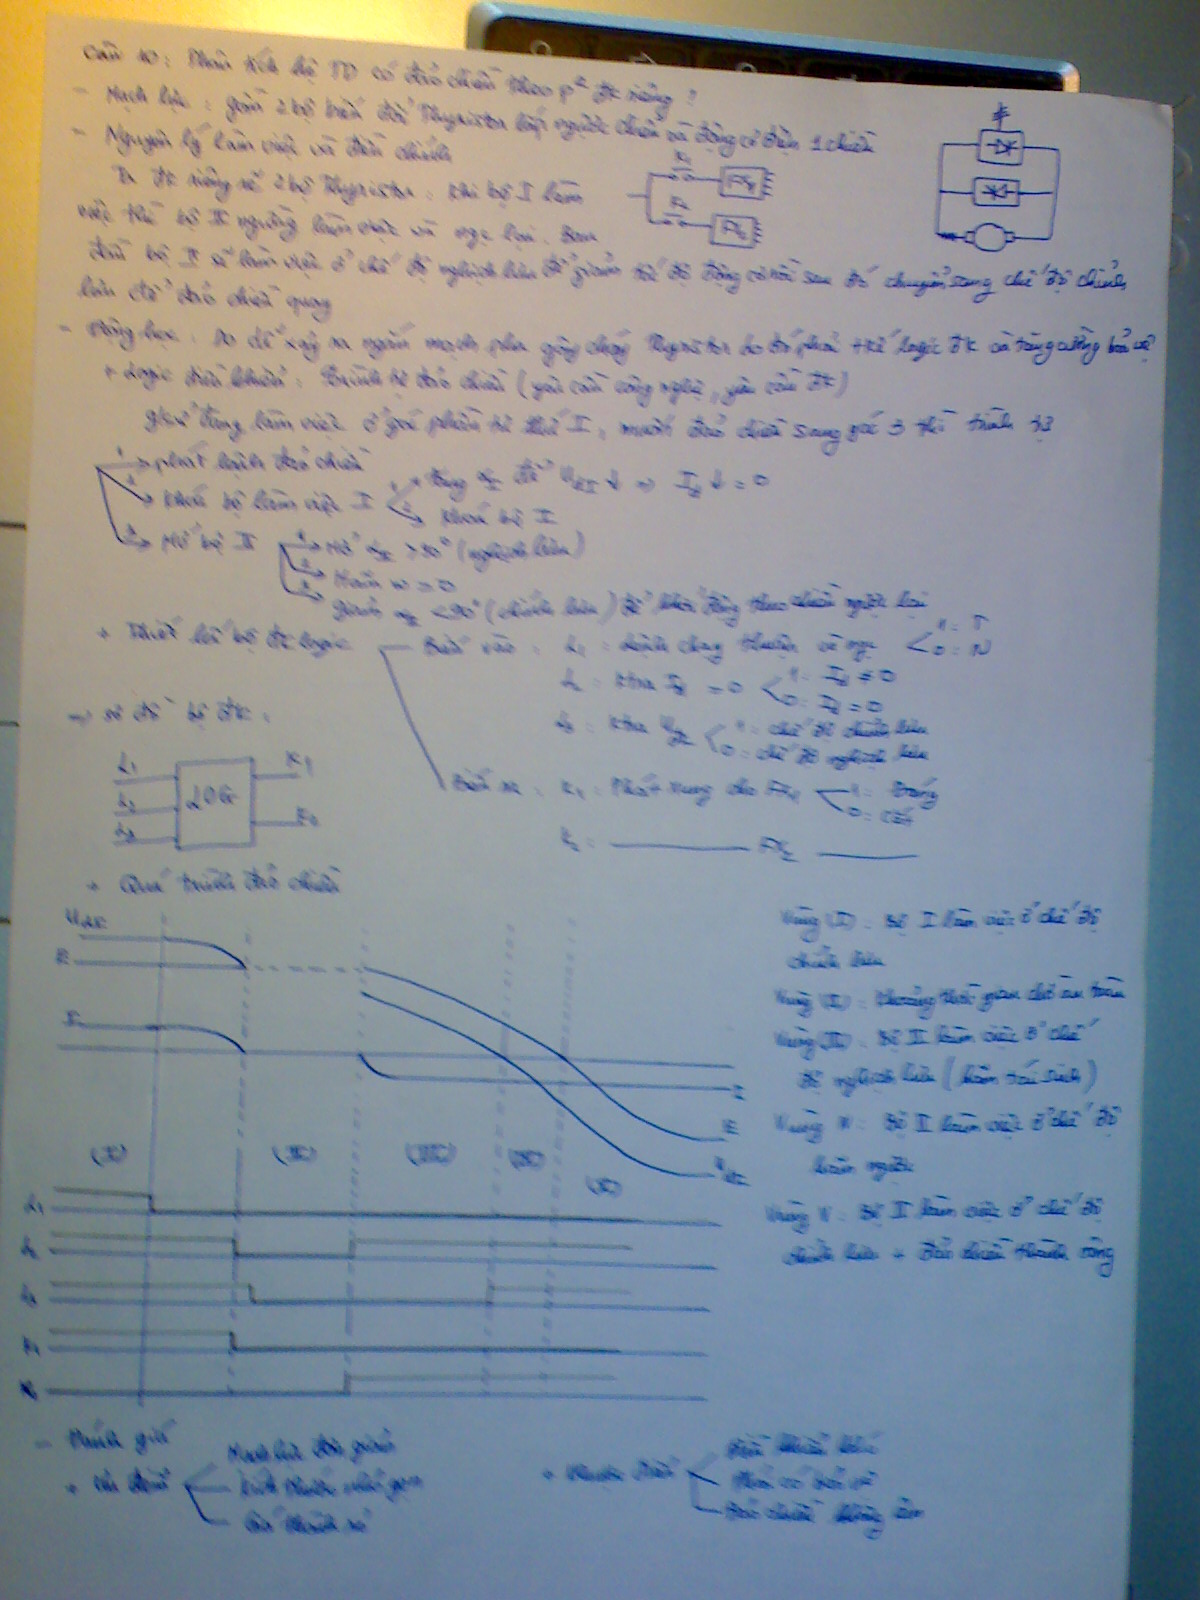 Câu 10: Phân tích hệ TD có đảo chiều theo p² đk riêng?
- Mạch lực: gồm 2 bộ biến đổi Thyristor lắp ngược chiều và động cơ điện 1 chiều
- Nguyên lý làm việc và điều chỉnh
Ta đk riêng rẽ 2 bộ Thyristor. Khi bộ I làm
việc thì bộ II ngừng làm việc và ngc lại. Ban
đầu bộ II sẽ làm việc ở chế độ nghịch lưu để giảm tốc độ động cơ rồi sau đó chuyển sang chế độ chỉnh
lưu để đảo chiều quay
K1
FX1
K2
FX2
- Động học: Do dễ xảy ra ngắn mạch pha gây cháy Thyristor do đó phải tkế logic đk và tăng cường bảo vệ
+ Logic điều khiển: Trình tự đảo chiều (yêu cầu công nghệ, yêu cầu đk)
gsử đang làm việc ở góc phần tư thứ I, muốn đảo chiều sang góc 3 thì trình tự
phát lệnh đảo chiều
Khoá bộ làm việc I
Tăng α_I để U_dI ↓ ⇒ I_d ↓ = 0
Khoá bộ I
Mở bộ II
Mở α_II > 90° (nghịch lưu)
Hãm w = 0
giảm α_II < 90° (chỉnh lưu) để khởi động theo chiều ngược lại
+ Thiết kế bộ đk logic
Biến vào: L1: Lệnh chạy thuận và ngc
1: T
0: N
L2: ktra Iđ = 0
1: Iđ ≠ 0
0: Iđ = 0
L3: ktra
1: chế độ chỉnh lưu
0: chế độ nghịch lưu
⇒ sơ đồ bộ đk:
L1
L2
L3
LOG
K1
K2
Biến ra: K1: Phát xung cho FX1
1: Đóng
0: Cắt
K2: ——— FX2 ———
+ Quá trình đảo chiều
E
I
I
E
(I)
(II)
(III)
(IV)
(V)
L1
L2
L3
K1
K2
Vùng (I): Bộ I làm việc ở chế độ
chỉnh lưu
Vùng (II): Khoảng thời gian chờ an toàn
Vùng (III): Bộ II làm việc ở chế
độ nghịch lưu (hãm tái sinh)
Vùng IV: Bộ II làm việc ở chế độ
hãm ngược
Vùng V: Bộ II làm việc ở chế độ
chỉnh lưu + đảo chiều thành công
- Đánh giá
+ Ưu điểm
Mạch lực đơn giản
Kích thước nhỏ gọn
Giá thành rẻ
+ Nhược điểm
Điều khiển khó
Phải có bảo vệ
Đảo chiều không êm